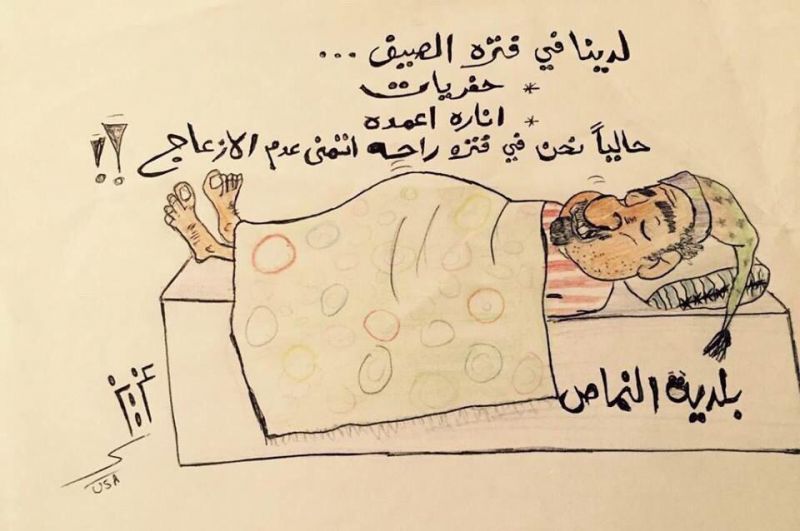 لدينا في فتره الصيف ...
* حفريات
* اناره اعمده
حالياً نحن في فتره راحه اتمنى عدم الازعاج !!
بلدية النماص
USA